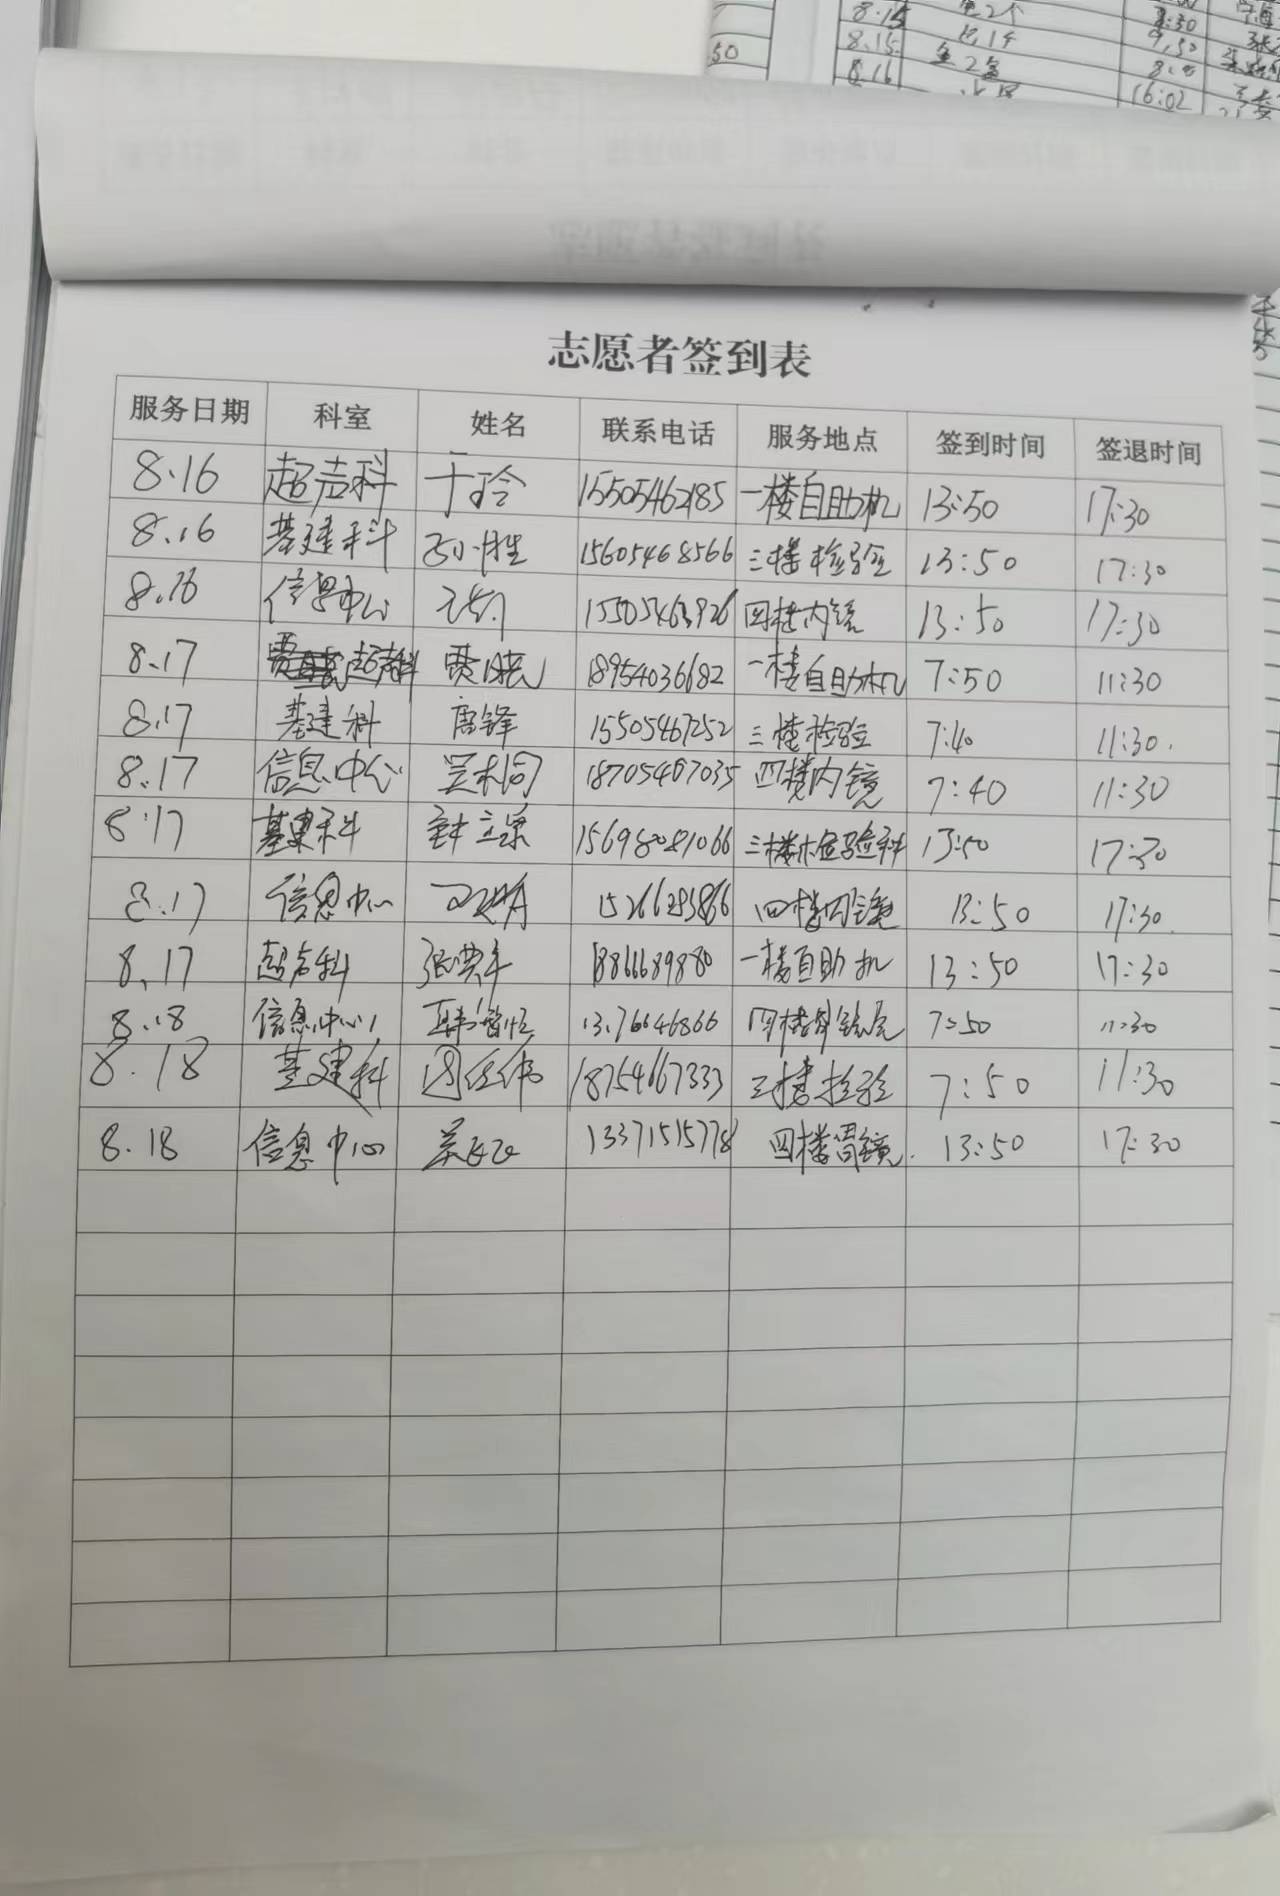 志愿者签到表
服务日期 科室 姓名 联系电话 服务地点 签到时间 签退时间
8.16 超声科 于玲 15505462185 一楼自助机 13:50 17:30
8.16 基建科 15605468566 三楼检验 13:50 17:30
8.16 信息中心 四楼内镜 13:50 17:30
8.17 超声科 贾晓 18954036682 一楼自助机 7:50 11:30
8.17 基建科 唐锋 15505467252 三楼检验 7:40 11:30.
8.17 信息中心 18705467035 四楼内镜 7:40 11:30
8.17 基建科 三楼检验科 13:50 17:30
8.17 信息中心 四楼内镜 13:50 17:30.
8.17 超声科 一楼自助机 13:50 17:30
8.18 信息中心 7:50 11:30
8.18 基建科 周经伟 18754667333 三楼检验 7:50 11:30
8.18 信息中心 13371515778 四楼胃镜. 13:50 17:30
50
8.15 鱼2个 8:30
8.15 9.50
8.16 鱼2
16:02